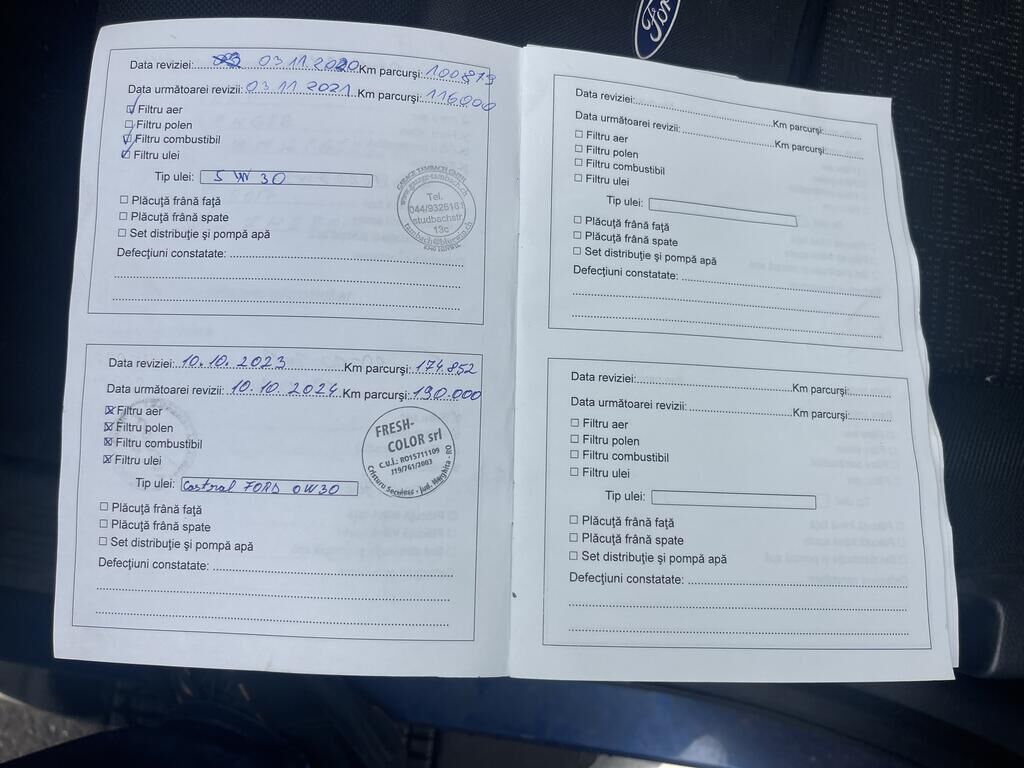 Ford
Data reviziei: 03 11 2020 Km parcurşi: 100879
Data următoarei revizii: 03 11 2021 Km parcurşi: 116000
Filtru aer
Filtru polen
Filtru combustibil
Filtru ulei
Tip ulei: 5W30
Plăcuţă frână faţă
Plăcuţă frână spate
Set distribuţie şi pompă apă
Defecţiuni constatate:
GARAGE TAMBACH
www.garage-tambach.ch
Tel.
044/9326161
studbachstr
13c
tambach@bluewin.ch
Data reviziei: 10.10.2023 Km parcurşi: 174.852
Data următoarei revizii: 10.10.2024 Km parcurşi: 190.000
Filtru aer
Filtru polen
Filtru combustibil
Filtru ulei
Tip ulei: Castrol FORD 0W30
Plăcuţă frână faţă
Plăcuţă frână spate
Set distribuţie şi pompă apă
Defecţiuni constatate:
FRESH-
COLOR srl
C.u.i.: RO15711109
J19/761/2003
Cristuru Secuiesc - jud. Harghita - RO
Data reviziei: Km parcurşi:
Data următoarei revizii: Km parcurşi:
Filtru aer
Filtru polen
Filtru combustibil
Filtru ulei
Tip ulei:
Plăcuţă frână faţă
Plăcuţă frână spate
Set distribuţie şi pompă apă
Defecţiuni constatate:
Data reviziei: Km parcurşi:
Data următoarei revizii: Km parcurşi:
Filtru aer
Filtru polen
Filtru combustibil
Filtru ulei
Tip ulei:
Plăcuţă frână faţă
Plăcuţă frână spate
Set distribuţie şi pompă apă
Defecţiuni constatate: